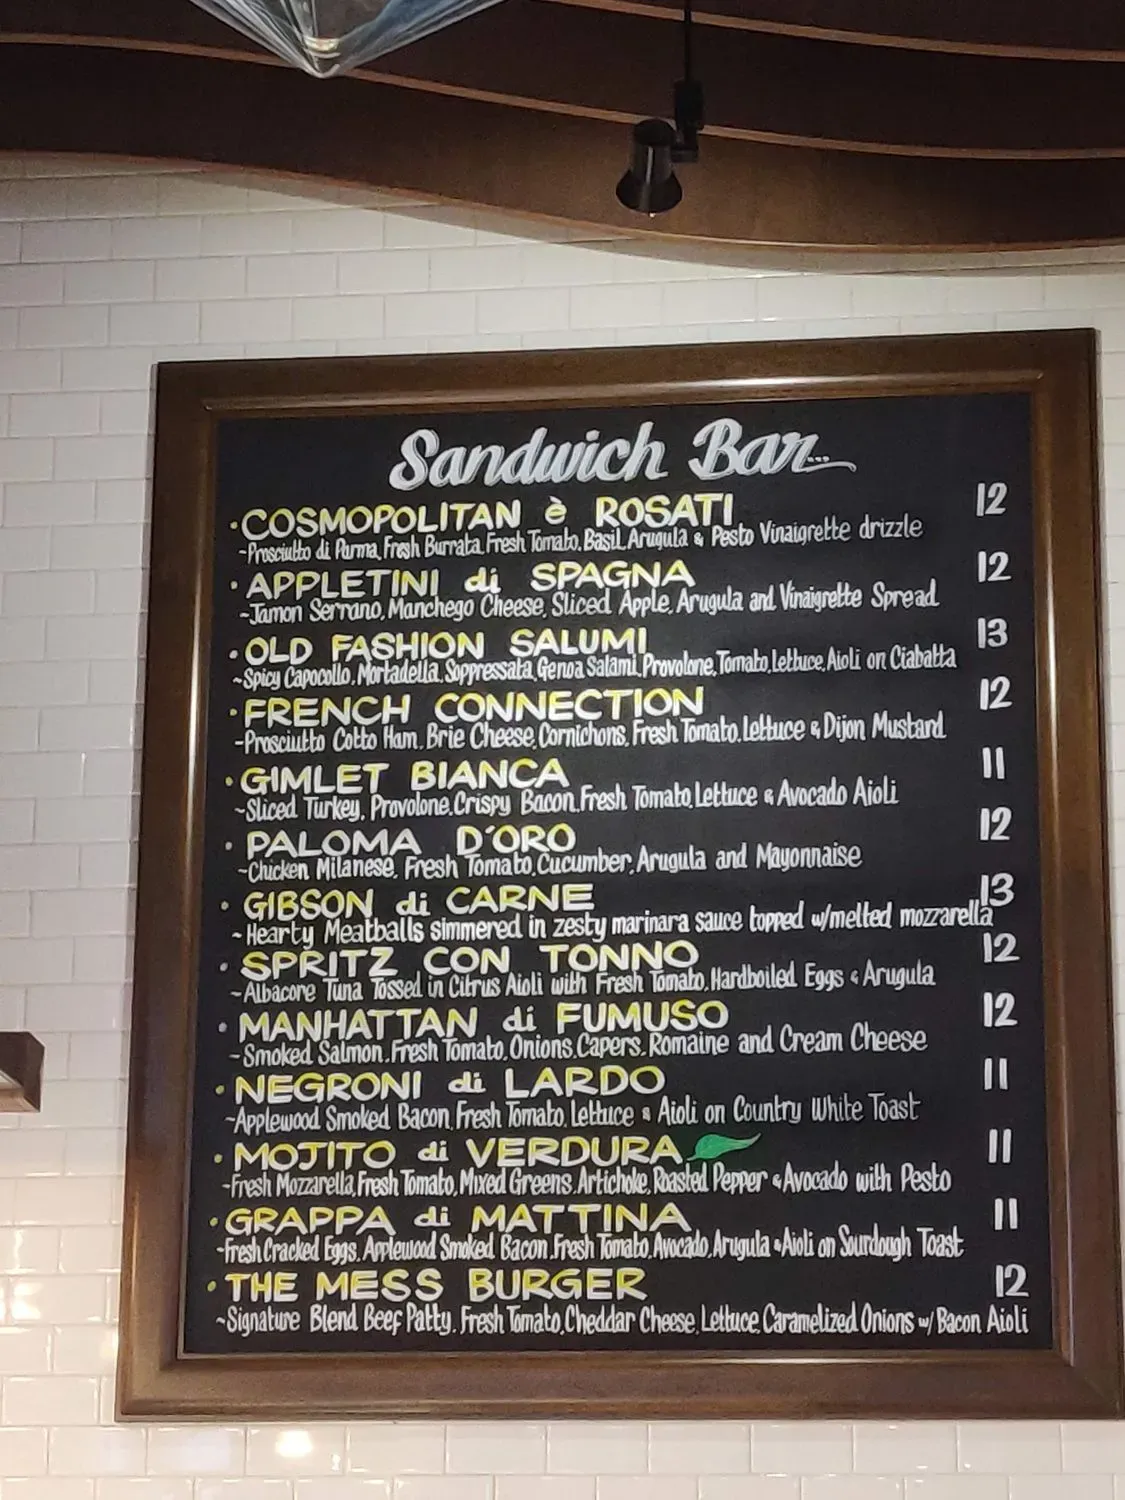 Sandwich Bar...
·COSMOPOLITAN è ROSATI 12
~Prosciutto di Parma, Fresh Burrata, Fresh Tomato, Basil, Arugula & Pesto Vinaigrette drizzle
·APPLETINI di SPAGNA 12
~Jamon Serrano, Manchego Cheese, Sliced Apple, Arugula and Vinaigrette Spread
·OLD FASHION SALUMI 13
~Spicy Capocollo, Mortadella, Soppressata, Genoa Salami, Provolone, Tomato, Lettuce, Aioli on Ciabatta
·FRENCH CONNECTION 12
~Prosciutto Cotto Ham, Brie Cheese, Cornichons, Fresh Tomato, Lettuce & Dijon Mustard
·GIMLET BIANCA 11
~Sliced Turkey, Provolone, Crispy Bacon, Fresh Tomato, Lettuce & Avocado Aioli
·PALOMA D'ORO 12
~Chicken Milanese, Fresh Tomato, Cucumber, Arugula and Mayonnaise
·GIBSON di CARNE 13
~Hearty Meatballs simmered in zesty marinara sauce topped w/melted mozzarella
·SPRITZ CON TONNO 12
~Albacore Tuna Tossed in Citrus Aioli with Fresh Tomato, Hardboiled Eggs & Arugula
·MANHATTAN di FUMUSO 12
~Smoked Salmon, Fresh Tomato, Onions, Capers, Romaine and Cream Cheese
·NEGRONI di LARDO 11
~Applewood Smoked Bacon, Fresh Tomato, Lettuce & Aioli on Country White Toast
·MOJITO di VERDURA 11
~Fresh Mozzarella, Fresh Tomato, Mixed Greens, Artichoke, Roasted Pepper & Avocado with Pesto
·GRAPPA di MATTINA 11
~Fresh Cracked Eggs, Applewood Smoked Bacon, Fresh Tomato, Avocado, Arugula & Aioli on Sourdough Toast
·THE MESS BURGER 12
~Signature Blend Beef Patty, Fresh Tomato, Cheddar Cheese, Lettuce, Caramelized Onions w/ Bacon Aioli